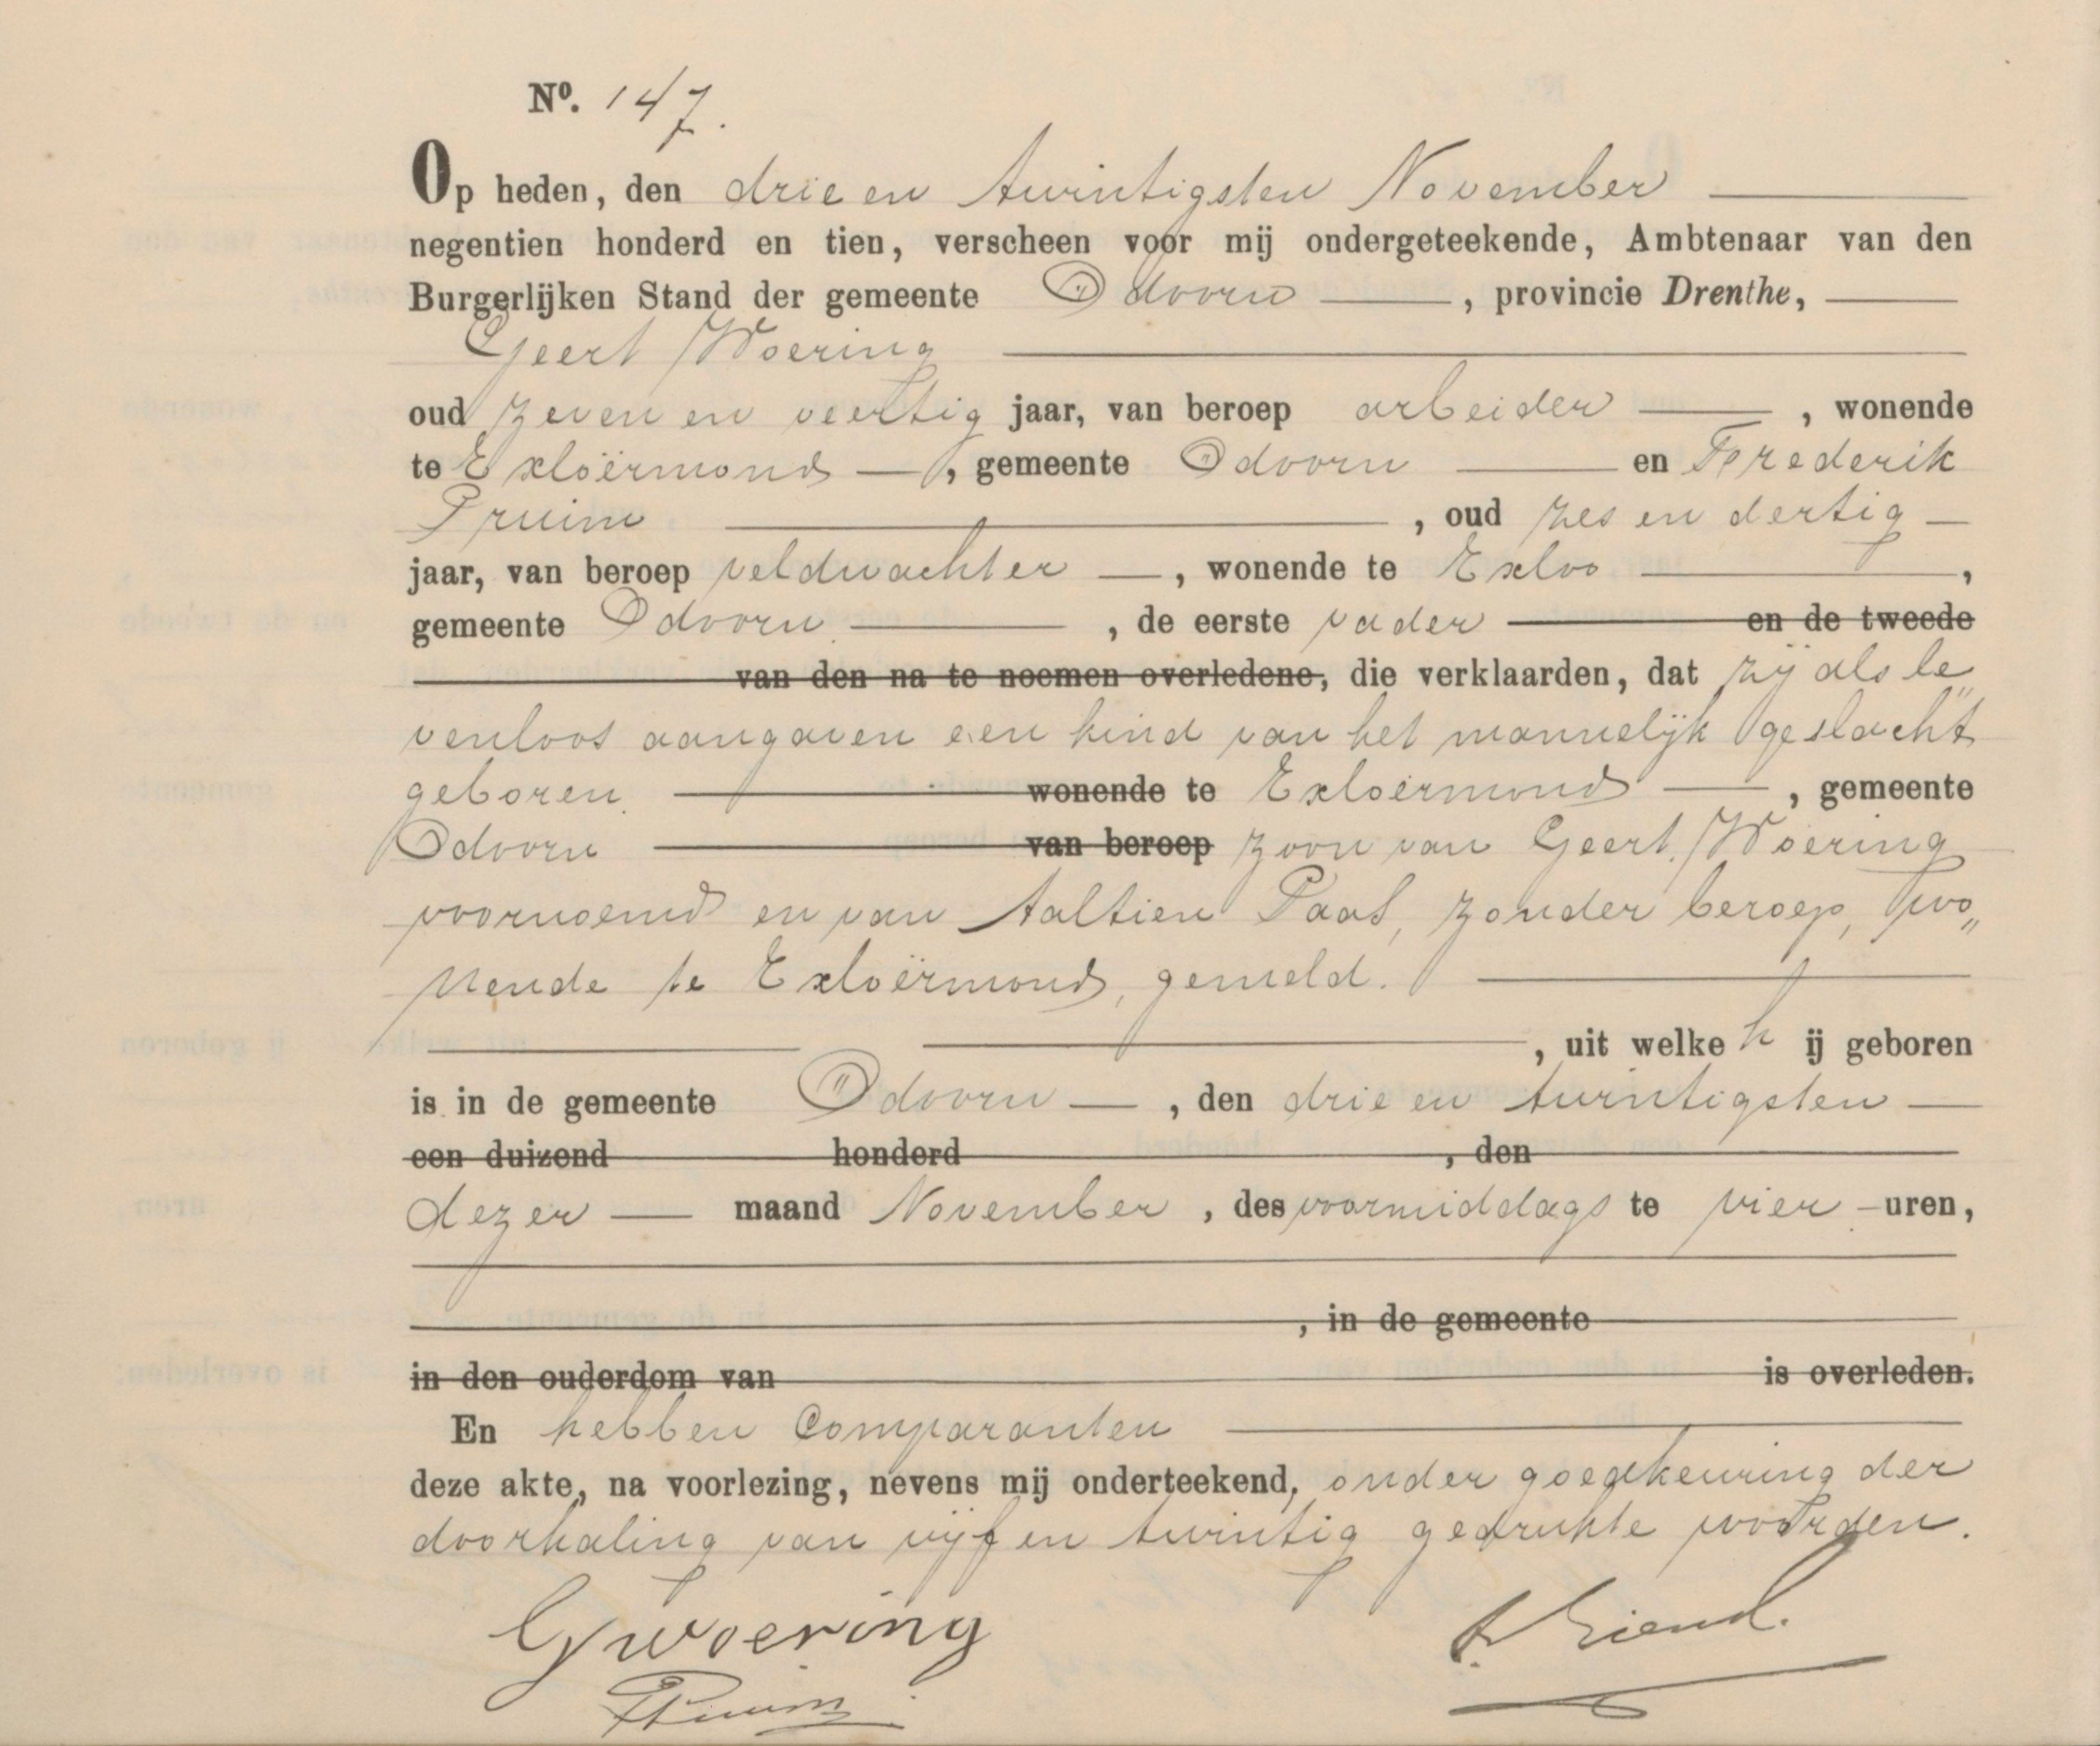 Nº. 147.
Op heden, den drie en twintigsten November
negentien honderd en tien, verscheen voor mij ondergeteekende, Ambtenaar van den
Burgerlijken Stand der gemeente Odoorn, provincie Drenthe,
Geert Woering
oud zeven en veertig jaar, van beroep arbeider, wonende
te Exloërmond, gemeente Odoorn en Frederik
Pruim, oud zes en dertig
jaar, van beroep veldwachter, wonende te Exloo,
gemeente Odoorn, de eerste vader en de tweede
van den na te noemen overledene, die verklaarden, dat zij als le„
venloos aangaven een kind van het mannelijk geslacht
geboren wonende te Exloërmond, gemeente
Odoorn van beroep zoon van Geert Woering
voornoemd en van Aaltien Paas, zonder beroep, wo„
nende te Exloërmond, gemeld.
, uit welke h ij geboren
is in de gemeente Odoorn, den drie en twintigsten
een duizend honderd, den
dezer maand November, des voormiddags te vier uren,
, in de gemeente
in den ouderdom van is overleden.
En hebben Comparanten
deze akte, na voorlezing, nevens mij onderteekend, onder goedkeuring der
doorhaling van vijf en twintig gedrukte woorden.
G Woering
FPruim